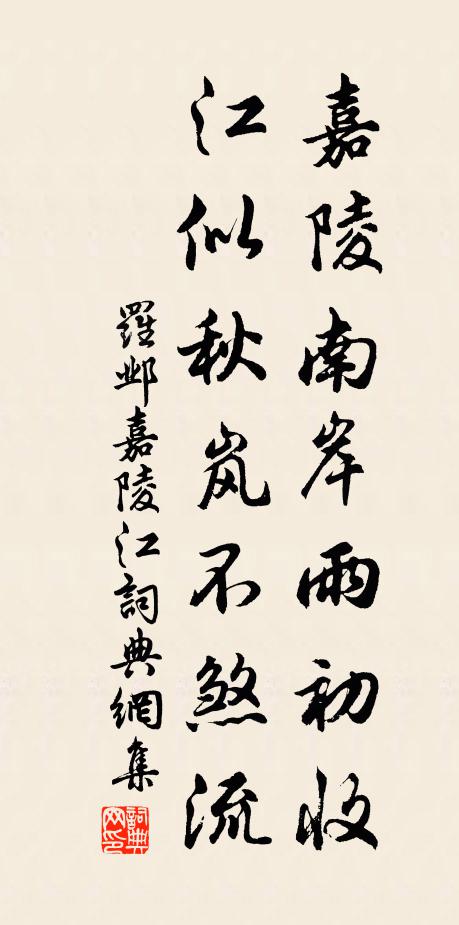 嘉陵南岸雨初收
江似秋岚不煞流
羅邺嘉陵江詞典網集
詞典
网印